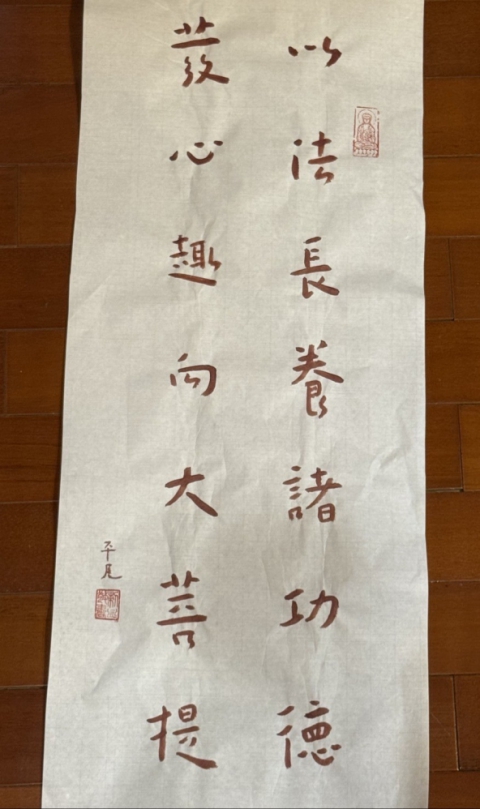 以法長養諸功德
發心趣向大菩提